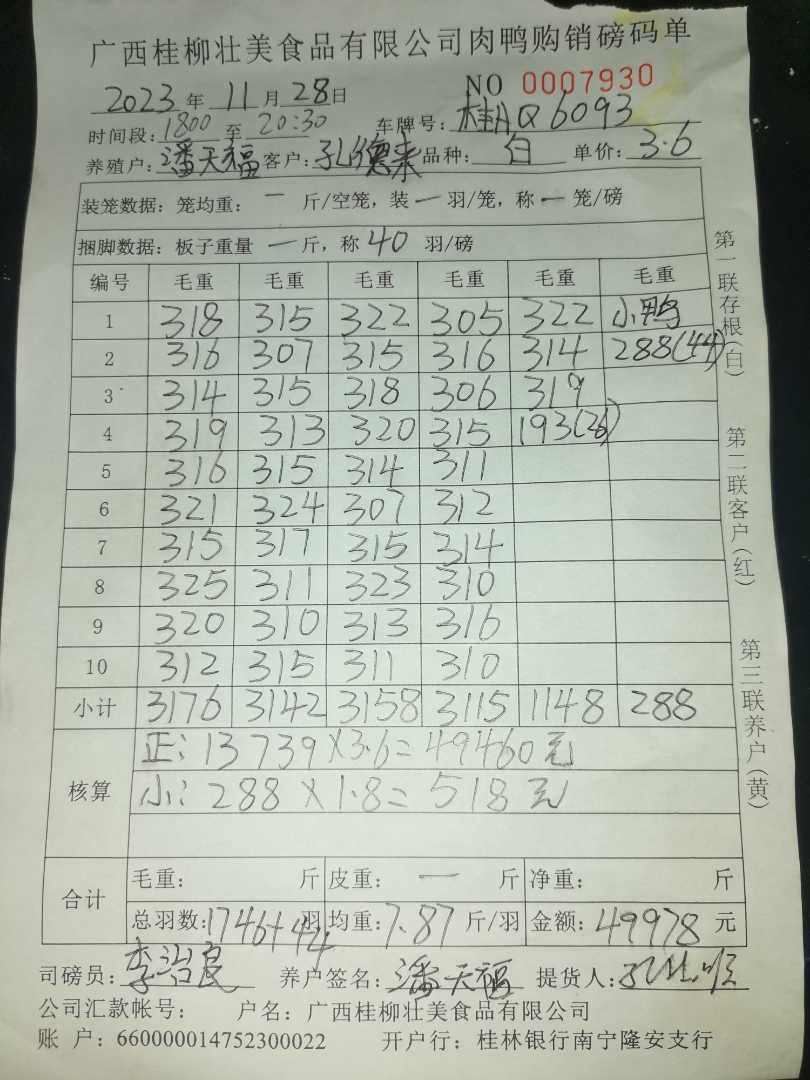 广西桂柳壮美食品有限公司肉鸭购销磅码单
2023年 11月28日 NO 0007930
时间段:1800至20:30 车牌号: Q6093
养殖户:潘天福 客户:孔德来 品种:白 单价:3.6
装笼数据:笼均重:一斤/空笼,装一羽/笼,称一笼/磅
捆脚数据:板子重量一斤,称40羽/磅
编号 毛重 毛重 毛重 毛重 毛重 毛重
1 318 315 322 305 322 小鸭
2 316 307 315 316 314 288(44)
3 314 315 318 306 319
4 319 313 320 315 193(26)
5 316 315 314 311
6 321 324 307 312
7 315 317 315 314
8 325 311 323 310
9 320 310 313 316
10 312 315 311 310
小计 3176 3142 3158 3115 1148 288
核算 正:13739×3.6=49460元
小:288×1.8=518元
合计 毛重: 斤 皮重:一斤 净重: 斤
总羽数:1746+44羽 均重:7.87斤/羽 金额:49978元
司磅员:李治良 养户签名:潘天福 提货人:
公司汇款帐号: 户名:广西桂柳壮美食品有限公司
账 户:660000014752300022 开户行:桂林银行南宁隆安支行
第一联存根(白)
第二联客户(红)
第三联养户(黄)